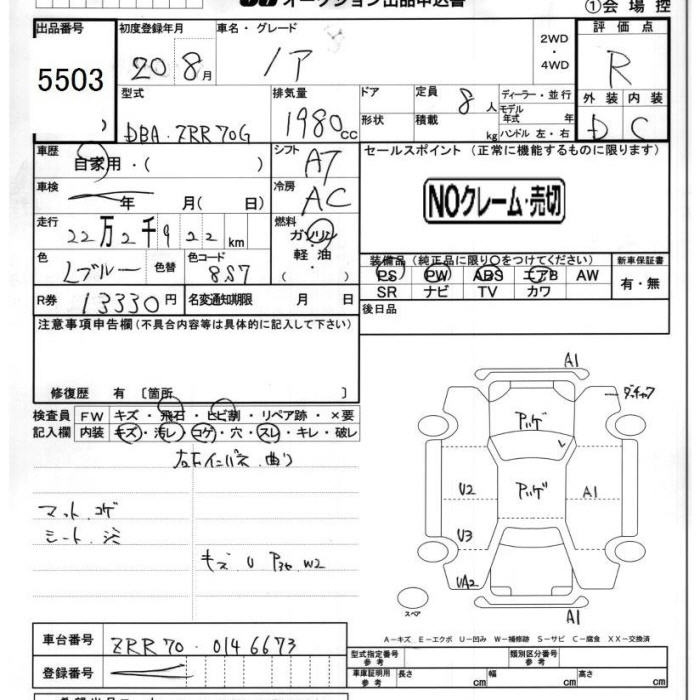 オークション出品申込書
①会場控
出品番号
5503
初度登録年月
20 8月
車名・グレード
ノア
2WD
・
4WD
評価点
R
外装 内装
D C
型式
DBA・ZRR70G
排気量
1980 CC
ドア
形状
定員
8人
積載
kg
ディーラー・並行
モデル
年式 年
ハンドル 左・右
車歴
自家用・( )
車検
年 月( 日)
走行
22万2千922km
色
Lブルー
色替
色コード
8S7
R券 13330円
名変通知期限 月 日
シフト
AT
冷房
AC
燃料
ガソリン
・
軽油
・
( )
セールスポイント(正常に機能するものに限ります)
NOクレーム・売切
装備品(純正品に限り○をつけてください)
PS PW ABS エアB AW
SR ナビ TV カワ
新車保証書
有・無
後日品
注意事項申告欄(不具合内容等は具体的に記入して下さい)
修復歴 有〔箇所 〕
検査員
記入欄
FW キズ・飛石・ヒビ割・リペア跡・×要
内装 キズ・汚レ・コゲ・穴・スレ・キレ・破レ
右Fインパネ曲り
マット.コゲ
シート.汚
キズ U P36 W2
A1
ダッチャク
アッゲ
U2
アッゲ
A1
U3
UA2
A1
スペア
A－キズ E－エクボ U－凹み W－補修跡 S－サビ C－腐食 XX－交換済
車台番号 ZRR70-0146673
登録番号
型式指定番号
参考
類別区分番号
参考
車庫証明用
参考
長さ cm 幅 cm 高さ cm